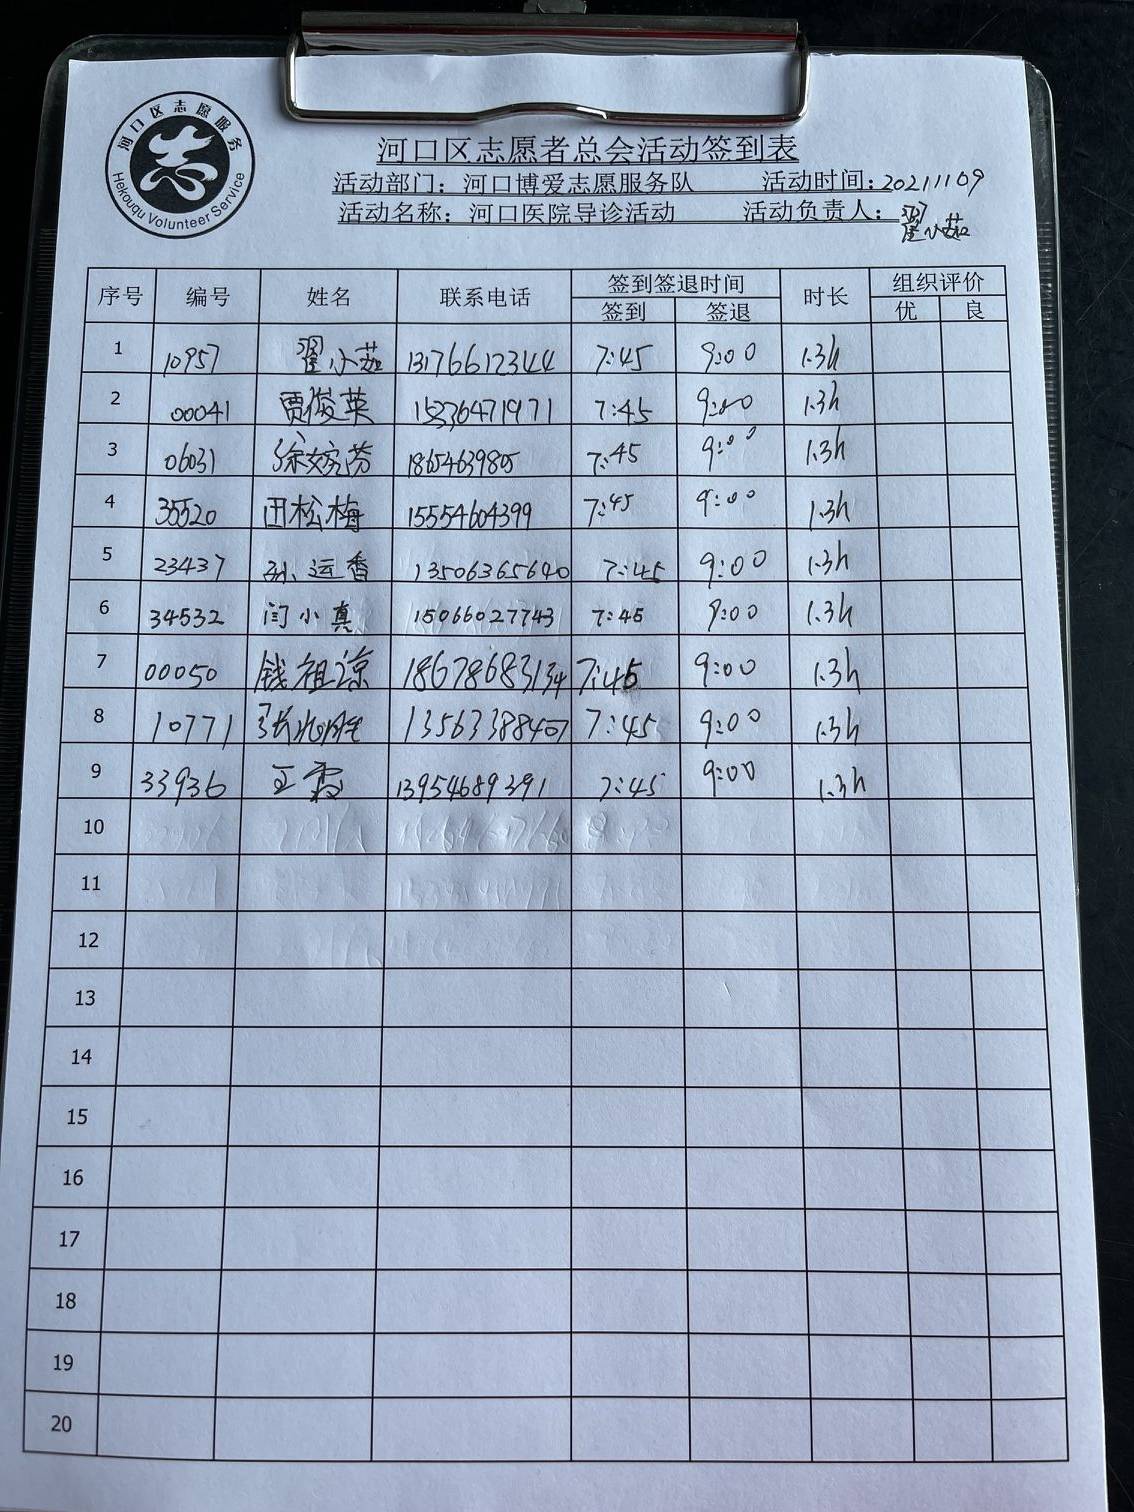 河口区志愿服务
Hekouqu Volunteer Service
河口区志愿者总会活动签到表
活动部门：河口博爱志愿服务队 活动时间：20211109
活动名称：河口医院导诊活动 活动负责人：翟小茹
序号 编号 姓名 联系电话 签到签退时间 时长 组织评价
签到 签退 优 良
1 10957 翟小茹 13176612344 7:45 9:00 1.3h
2 00041 贾俊英 15236471971 7:45 9:00 1.3h
3 06031 徐婉芬 1865463980 7:45 9:00 1.3h
4 35520 田松梅 15554604399 7:45 9:00 1.3h
5 23437 孙运香 13506365640 7:45 9:00 1.3h
6 34532 闫小真 15066027743 7:45 9:00 1.3h
7 00050 钱祖凉 18678683134 7:45 9:00 1.3h
8 10771 张 13563388407 7:45 9:00 1.3h
9 33936 王霞 13954689391 7:45 9:00 1.3h
10
11
12
13
14
15
16
17
18
19
20